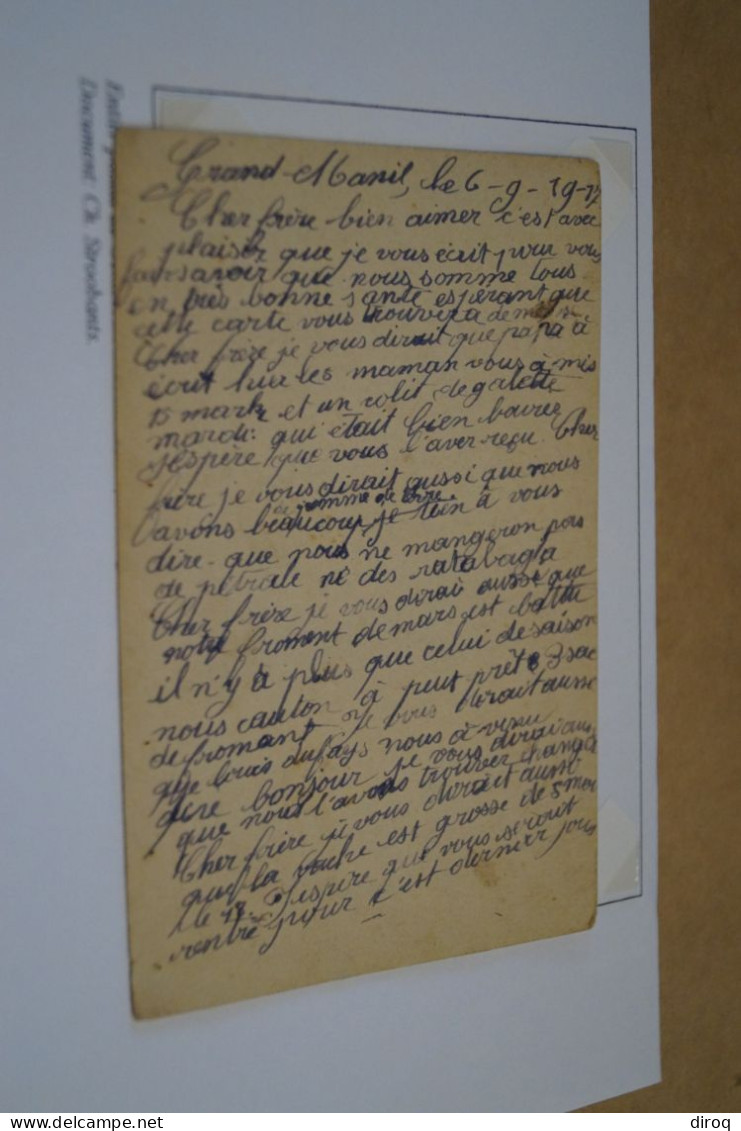 Grand-Manil, le 6-9-1917
Cher frère bien aimer c'est avec
plaisir que je vous ecrit pour vous
faire savoir que nous somme tous
en très bonne santé espérant que
cette carte vous trouvera de même
Cher frère je vous dirait que papa à
écrit les maman vous à mis
15 mark et un colit de galette
mardi qui était bien bourrez
J'espère que vous l'aver reçu. Cher
frère je vous dirait aussi que nous
de pomme de terre
avons beaucoup je tien à vous
dire que nous ne mangeron pas
de petrale né des rutabaga
Cher frère je vous dirai aussi que
notre froment de mars est battu
il n'y à plus que celui de saison
nous à peut prêt 3 sac
de fromant je vous dirait aussi
que louis dufays nous à venu
dire bonjour je vous dirai aussi
que nous l'avons trouver changé
Cher frère je vous dirait aussi
que la vache est grosse de 5 moi
le 18 J'espère que vous serait
rentré pour c'est dernier jour
Document: Ch. Stroobants.
diroq